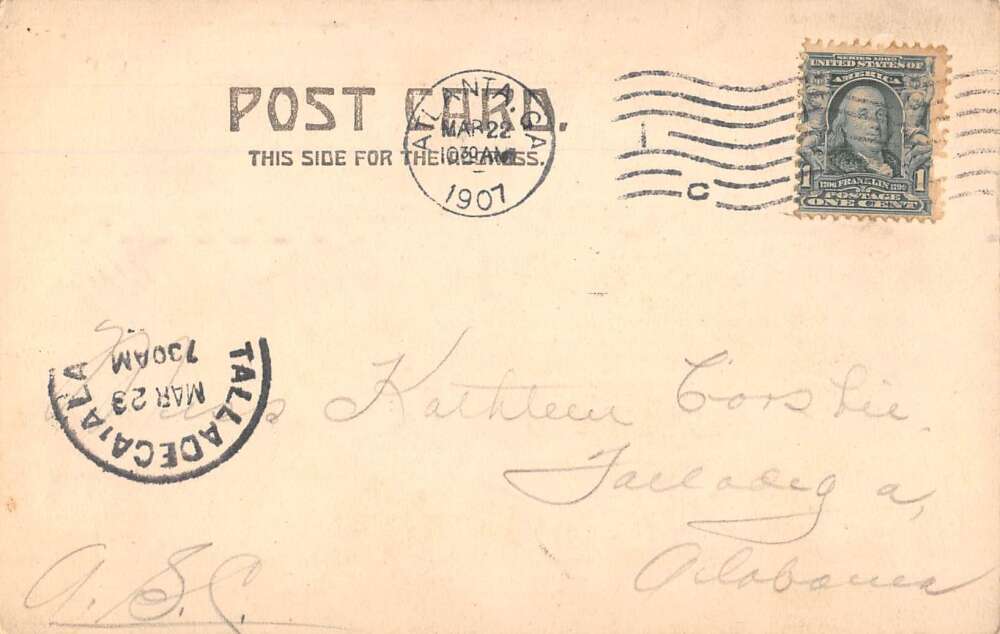 POST CARD.
THIS SIDE FOR THE ADDRESS.
ATLANTA, GA
MAR 22
1030AM
1907
1
C
SERIES 1902
UNITED STATES OF
AMERICA
1706 FRANKLIN 1790
1 POSTAGE 1
ONE CENT
TALLADEGA, ALA
MAR 23
730AM
Miss Kathleen Corsbie
Talladega,
Alabama
A. S. C.